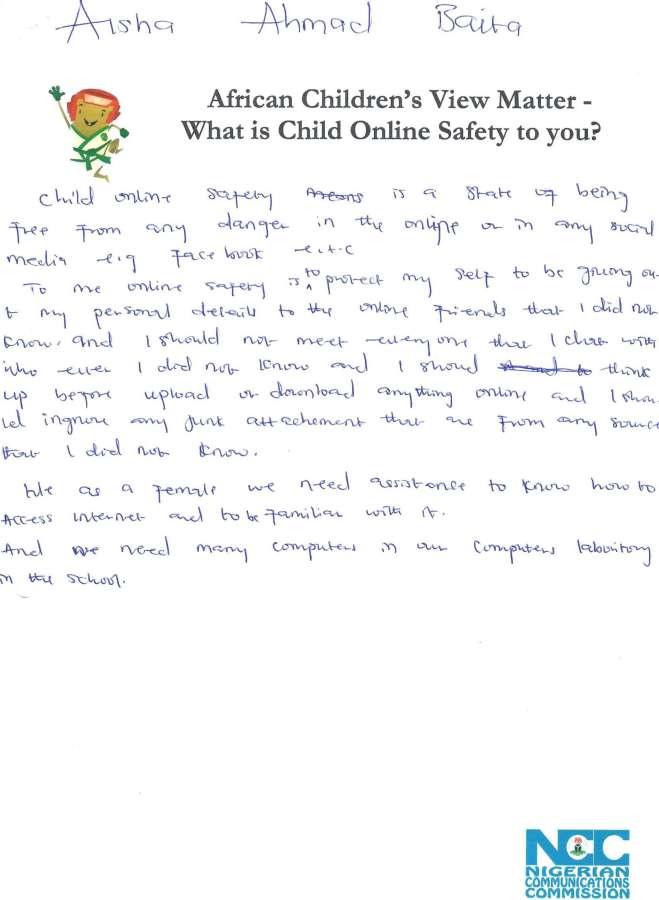 Aisha Ahmad Baita
African Children's View Matter -
What is Child Online Safety to you?
Child online safety is a state of being
free from any danger in the online or in any social
media e.g Face book e.t.c
To me online safety is to protect my self to be giving ou-
t my personal details to the online friends that I did not
know. and I should not meet everyone that I chat with
who ever I did not know and I should think
up before upload or download anything online and I shou
ld ingnore any junk attachement that are from any source
that I did not know.
We as a female we need assistance to know how to
Access internet and to be familiar with it.
And we need many computers in our computers laboritory
in the school.
NCC
NIGERIAN
COMMUNICATIONS
COMMISSION